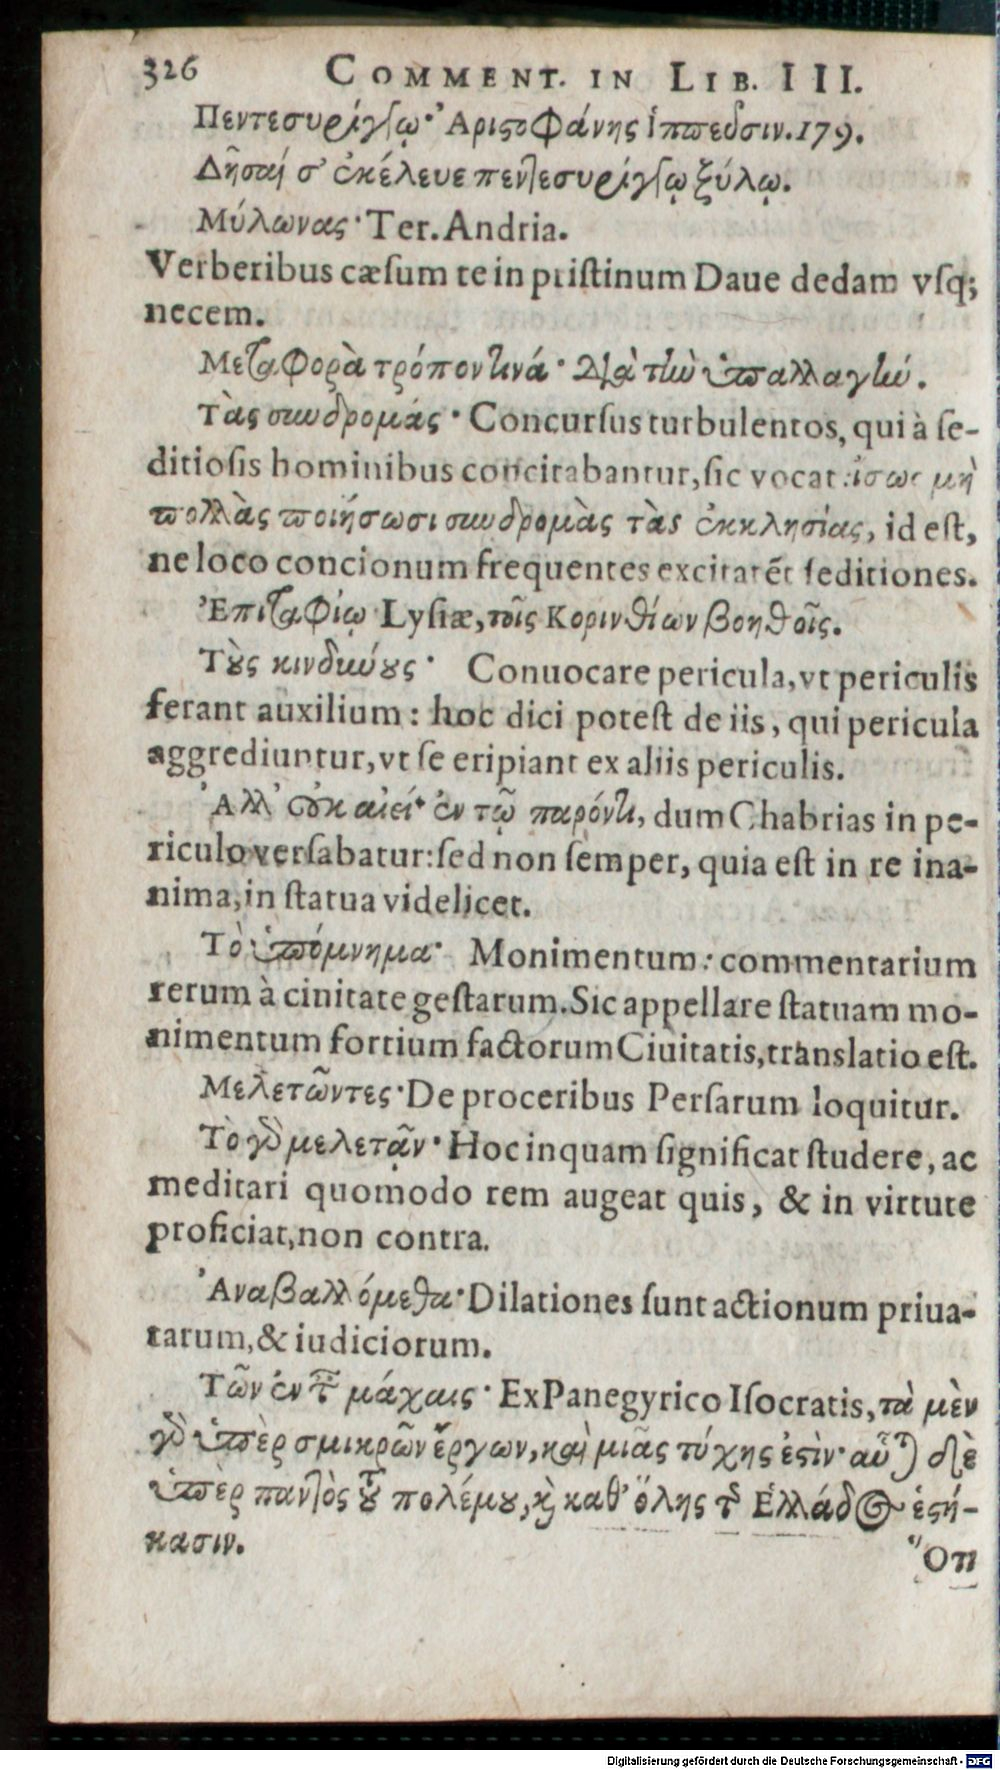 326 COMMENT. IN LIB. III.
Πεντεσυρίγγῳ· Ἀριστοφάνης ἱππεῦσιν. 179.
Δῆσαί σ' ἐκέλευε πεντεσυρίγγῳ ξύλῳ.
Μύλωνας· Ter. Andria.
Verberibus cæsum te in pristinum Daue dedam vsq;
necem.
Μεταφορὰ τρόπον τινά· διὰ τὴν ὑπαλλαγήν.
Τὰς συνδρομάς· Concursus turbulentos, qui à se-
ditiosis hominibus concitabantur, sic vocat: ἴσως μὴ
πολλὰς ποιήσωσι συνδρομὰς τὰς ἐκκλησίας, id est,
ne loco concionum frequentes excitarēt seditiones.
Ἐπιταφίῳ Lysiæ, τοῖς Κορινθίων βοηθοῖς.
Τοὺς κινδύνους· Conuocare pericula, vt periculis
ferant auxilium: hoc dici potest de iis, qui pericula
aggrediuntur, vt se eripiant ex aliis periculis.
Ἀλλ' οὐκ αἰεί· ἐν τῷ παρόντι, dum Chabrias in pe-
riculo versabatur: sed non semper, quia est in re ina-
nima, in statua videlicet.
Τὸ ὑπόμνημα· Monimentum: commentarium
rerum à ciuitate gestarum. Sic appellare statuam mo-
nimentum fortium factorum Ciuitatis, translatio est.
Μελετῶντες· De proceribus Persarum loquitur.
Τὸ γὰρ μελετᾷν· Hoc inquam significat studere, ac
meditari quomodo rem augeat quis, & in virtute
proficiat, non contra.
Ἀναβαλλόμεθα· Dilationes sunt actionum priua-
tarum, & iudiciorum.
Τῶν ἐν τ μάχαις· Ex Panegyrico Isocratis, τὰ μὲν
γὰρ ὑπὲρ σμικρῶν ἔργων, καὶ μιᾶς τύχης ἐστὶν· αὗται δὲ
ὑπὲρ παντὸς τοῦ πολέμου, καὶ καθ' ὅλης τῆς Ἑλλάδος ἑστή-
κασιν.
Ὅτι
Digitalisierung gefördert durch die Deutsche Forschungsgemeinschaft - DFG